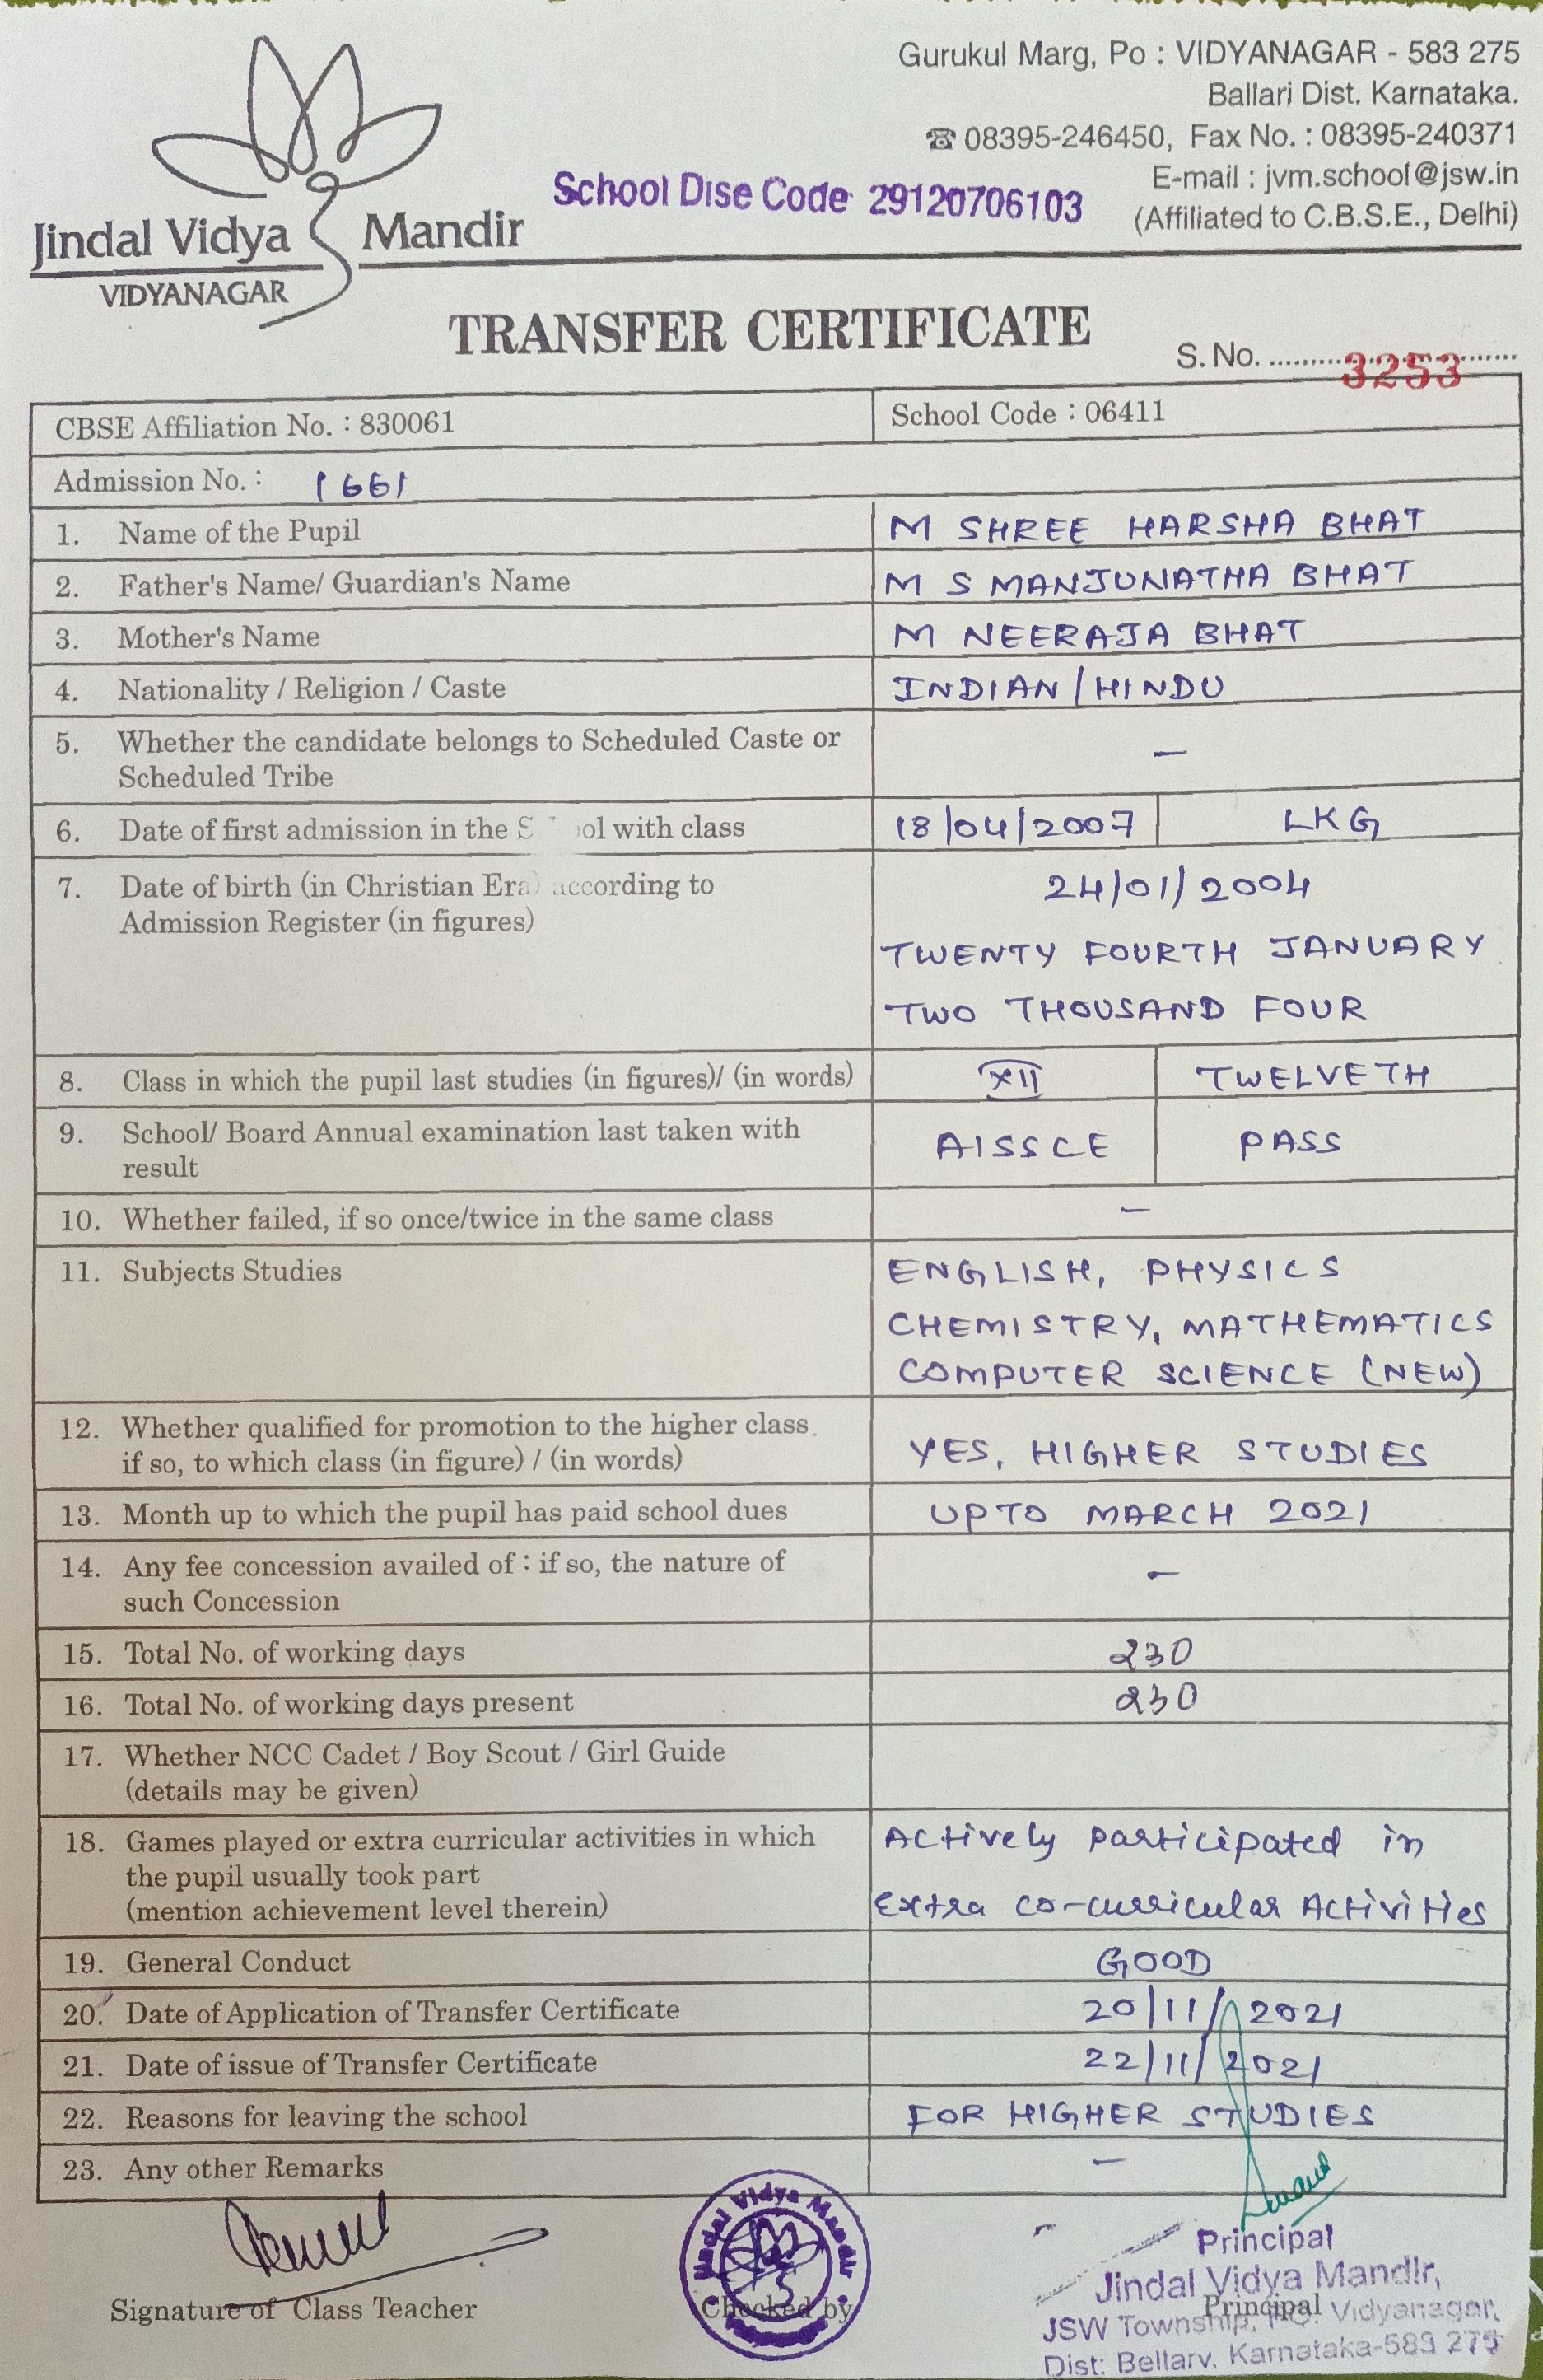 Gurukul Marg, Po : VIDYANAGAR - 583 275
Ballari Dist. Karnataka.
☎ 08395-246450, Fax No. : 08395-240371
E-mail : jvm.school@jsw.in
(Affiliated to C.B.S.E., Delhi)
School Dise Code 29120706103
Jindal Vidya Mandir
VIDYANAGAR
TRANSFER CERTIFICATE
S. No. .......... 3253
CBSE Affiliation No. : 830061 School Code : 06411
Admission No. : 1661
1. Name of the Pupil M SHREE HARSHA BHAT
2. Father's Name/ Guardian's Name M S MANJUNATHA BHAT
3. Mother's Name M NEERAJA BHAT
4. Nationality / Religion / Caste INDIAN / HINDU
5. Whether the candidate belongs to Scheduled Caste or –
Scheduled Tribe
6. Date of first admission in the S ol with class 18/04/2007 LKG
7. Date of birth (in Christian Era) according to 24/01/2004
Admission Register (in figures)
TWENTY FOURTH JANUARY
TWO THOUSAND FOUR
8. Class in which the pupil last studies (in figures)/ (in words) XII TWELVETH
9. School/ Board Annual examination last taken with AISSCE PASS
result
10. Whether failed, if so once/twice in the same class –
11. Subjects Studies ENGLISH, PHYSICS
CHEMISTRY, MATHEMATICS
COMPUTER SCIENCE (NEW)
12. Whether qualified for promotion to the higher class.
if so, to which class (in figure) / (in words) YES, HIGHER STUDIES
13. Month up to which the pupil has paid school dues UPTO MARCH 2021
14. Any fee concession availed of : if so, the nature of –
such Concession
15. Total No. of working days 230
16. Total No. of working days present 230
17. Whether NCC Cadet / Boy Scout / Girl Guide
(details may be given)
18. Games played or extra curricular activities in which Actively participated in
the pupil usually took part
(mention achievement level therein) Extra co-curricular Activities
19. General Conduct GOOD
20. Date of Application of Transfer Certificate 20/11/2021
21. Date of issue of Transfer Certificate 22/11/2021
22. Reasons for leaving the school FOR HIGHER STUDIES
23. Any other Remarks –
Jindal Vidya Mandir
Principal
Jindal Vidya Mandir,
Signature of Class Teacher Checked by Principal
JSW Township, PO: Vidyanagar,
Dist: Bellary, Karnataka-583 275